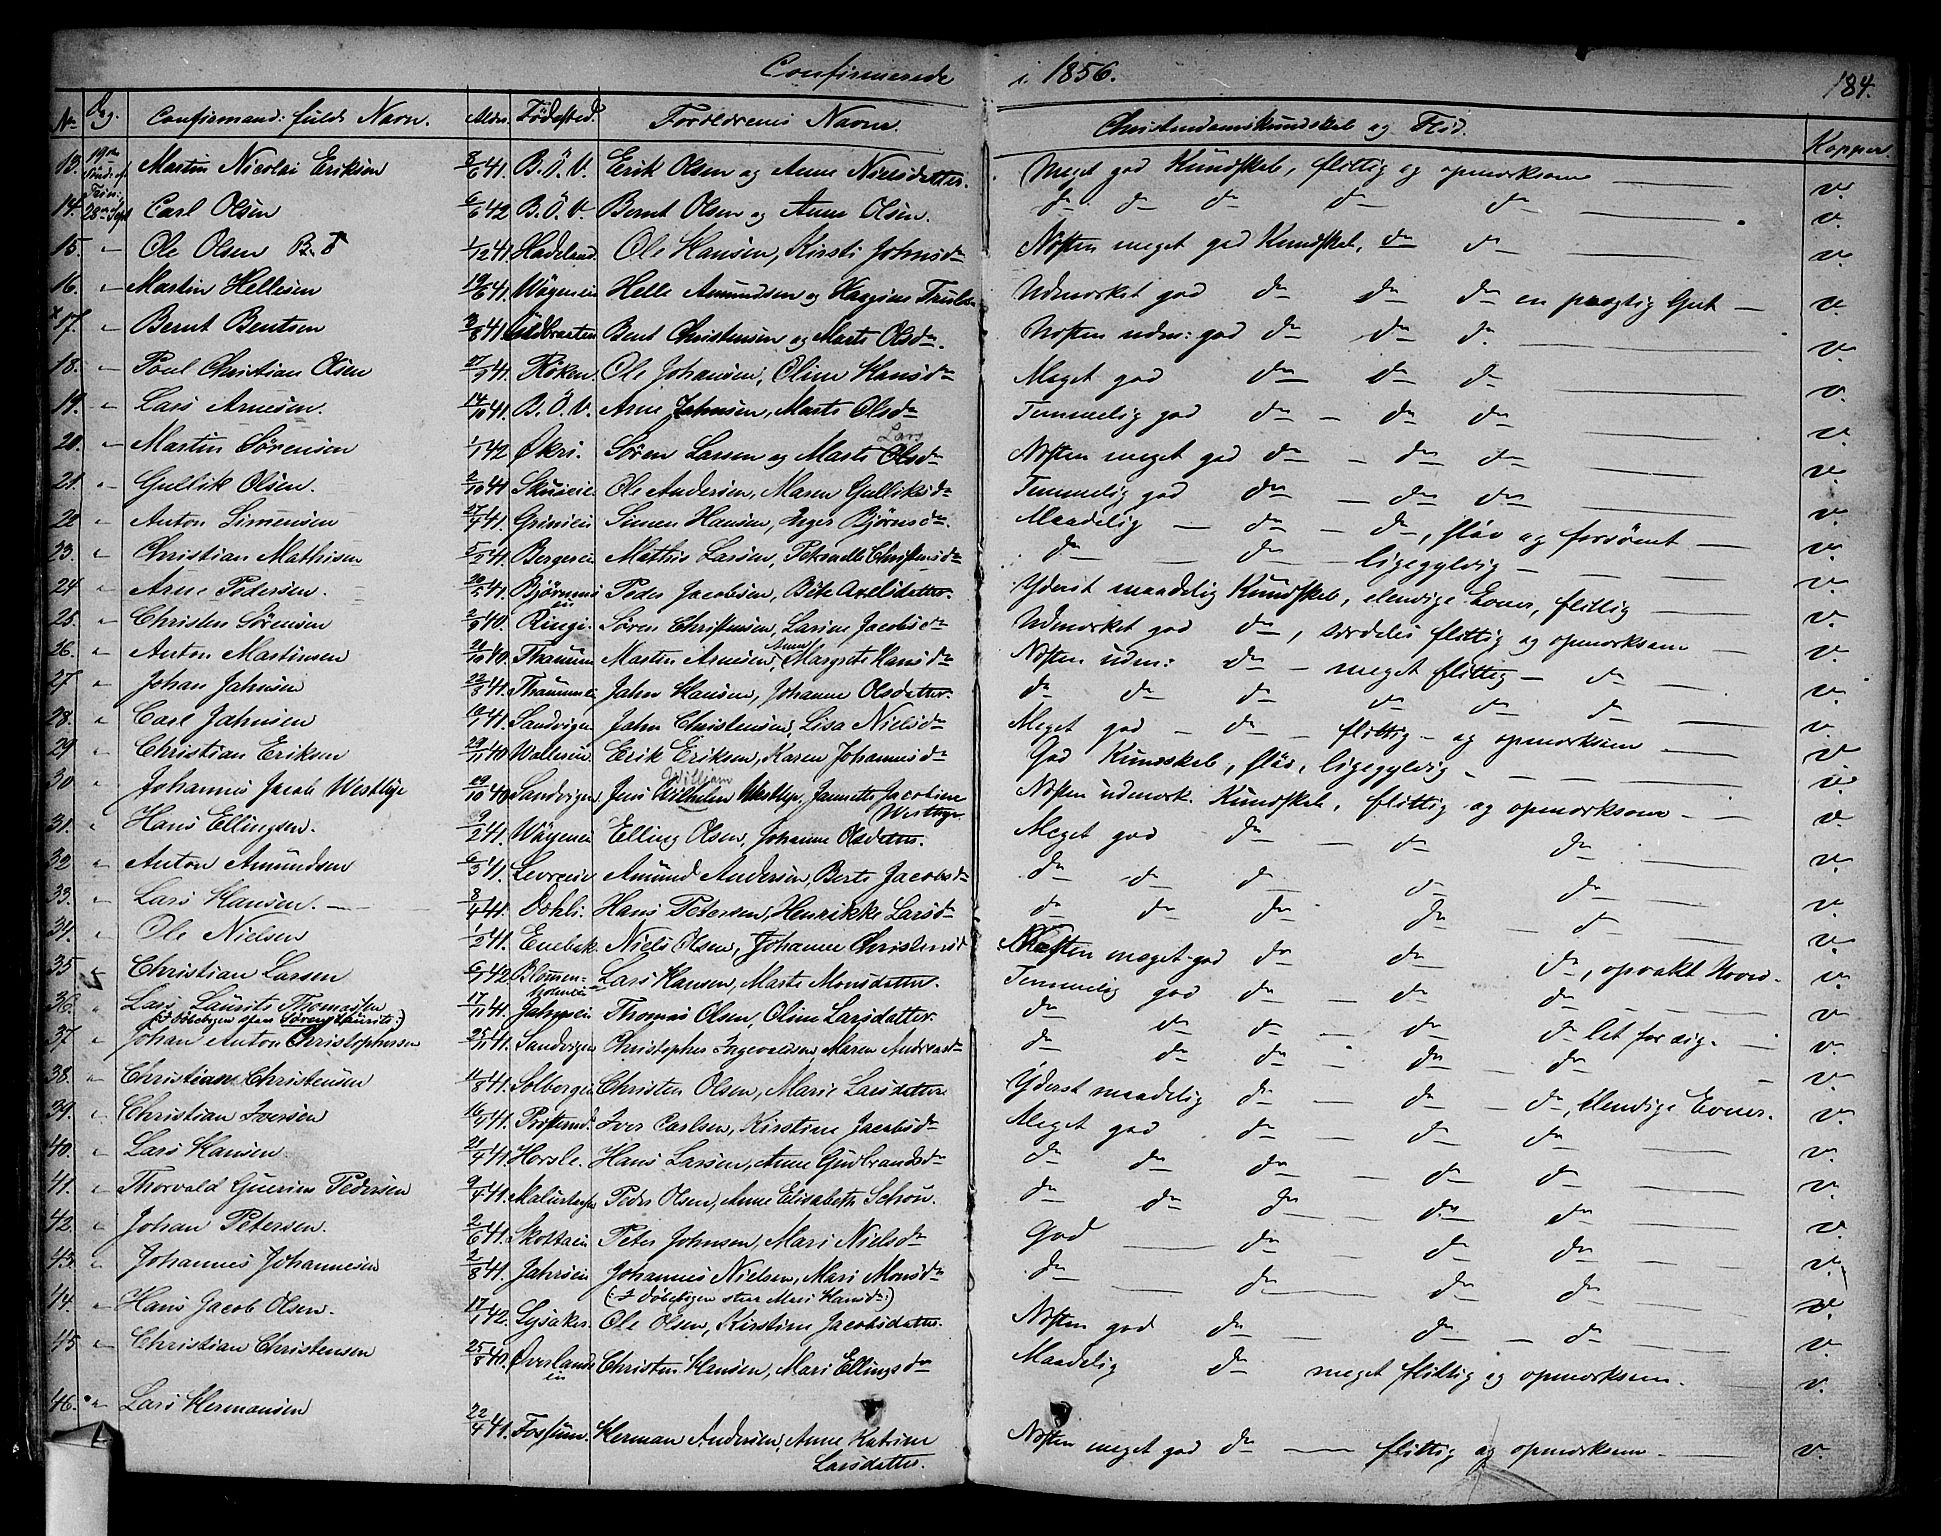 Confirmerede i 1856. 184.
No Dag. Confirmand: fulde Navn. Aldr. Fødested. Forældrenes Navne. Christendomskundskab og Flid. Kopper.
13. 19de Sönd. ef. Trin: Martin Nicolai Eriksen 8/6 41. B. Ö. V. Erik Olsen og Anne Nielsdatter. Meget god Kundskab, flittig og opmærksom — v.
14. 28de Sept Carl Olsen 6/6 42 B. Ö. V. Bernt Olsen og Anne Olsen. do do do do do — v.
15. " Ole Olsen 1/12 41. Hadeland Ole Hansen, Kirsti Johnsdr Næsten meget god Kundskab, do do — v.
16. " Martin Hellesen 19/6 41. Wøyeneie Helle Amundsen og Udmærket god do do do en prægtig Gut — v.
x 17. " Bernt Bentsen 3/8 41 Bent Christensen og Marte Olsdr. Næsten udm: god do do do — v.
18. — Poul Christian Olsen 27/9 41. Røken. Ole Johansen, Oline Hansdr Meget god do do do — v.
19. " Lars Arnesen. 14/10 41. B. Ö. V. Arne Johnsen, Marte Olsdr Temmelig god do — do do v.
20. — Martin Sørensen 1/1 42 Økri. Søren Larsen og Marte Olsdr Lars Næsten meget god do — do do — v.
21. " Gullik Olsen. 2/10 41 Skuieie. Ole Andersen, Maren Gulliksdr Temmelig god do — do do — v.
22 " Anton Simensen 27/4 41. Grinieie Simen Hansen, Inger Bjørnsdr. Maadelig — do — do, sløv og forsömt — v.
23. " Christian Mathisen 5/2 41. Bergereie Mathis Larsen, Petronelle Christensdr do — do — ligegyldig — v.
24 " Arne Pedersen. 20/5 41. Bjørumseie Peder Jacobsen, Berte Axelsdatter. Yderst maadelig Kundskab, elendige Evner, flittig — v.
25. " Christen Sørensen 2/9 40. Ringi. Søren Christensen, Larine Jacobsdr Udmærket god do, særdeles flittig og opmærksom — v.
26. " Anton Martinsen 21/10 40. Martin Arnesen, Anne Margrete Hansdr Næsten udm: do — meget flittig — do — v.
27 " Johan Jahnsen 22/3 41. Jahn Hansen, Johanne Olsdatter. do do do do do do — v.
28. " Carl Jahnsen 10/4 41. Sandvigen Jahn Christensen, Lisa Nielsdr Meget god — do — flittig — og opmærksom — v.
29 " Christian Eriksen 29/11 40 Erik Eriksen, Karen Johannesdr God Kundskab, sløv, ligegyldig — v.
30 " Johannes Jacob Westbye 29/10 40 Sandvigen Jens Wilhelm William Westbye, Jannette Jacobine Westbye. Næsten udmærk. Kundskab, flittig og opmærksom — v.
31. " Hans Ellingsen. 9/2 41. Wøyeneie Elling Olsen, Johanne Olsdatter. Meget god do — do do — v.
32 " Anton Amundsen 6/3 41. Levreeie Amund Andersen, Berte Jacobsdr do do do do do — v.
33. " Lars Hansen. — 8/4 41. Dæhli. Hans Petersen, Henrikke Larsdr do do do do do — v.
34. " Ole Nielsen 1/2 41. Enebak Niels Olsen, Johanne Christensd Næsten meget god do do do, opvakt Hoved. v.
35 " Christian Larsen 6/1 42. Blommenholmeie Lars Hansen, Marte Monsdatter. Temmelig god do — do do — v.
36. " Lars Laurits Thomassen (: I Døbebogen staar Sören Laurits:) 17/11 41. Jahrseie Thomas Olsen, Oline Larsdatter. do do do — do do let for sig. — v.
37 " Johan Anton Christophersen 25/11 41. Sandvigen Christopher Ingevaldsen, Maren Andreasdr do do do — do do — v.
38. " Christian Christensen 11/3 41. Solbergeie Christen Olsen, Marie Larsdatter Yderst maadelig do — do — do, Elendige Evner. v.
39. " Christian Iversen 16/5 41. Iver Carlsen, Kirstine Jacobsdr Meget god do — do do v.
40. " Lars Hansen 21/4 41. Horsle. Hans Larsen, Anne Gudbrandsdr do do do — do do v.
41. " Thorvald Guerin Pedersen 9/4 41. Peder Olsen, Anne Elisabeth Schou. do do do — do do v.
42. " Johan Petersen. 2/6 41. Skottaeie Peter Johnsen, Mari Nielsdr God — do — do do v.
43. " Johannes Johannesen 2/8 41. Jahrseie Johannes Nielsen, Mari Monsdr (: I Döbebogen staar Mari Hansdr:) do — do — do do — v.
44. " Hans Jacob Olsen. 17/1 42. Lysaker Ole Olsen, Kirstine Jacobsdatter. Næsten god do — do — do — v.
45 " Christian Christensen 25/8 40. Øverlandseie Christen Hansen, Mari Ellingsdr Maadelig do meget flittig og opmærksom. — v.
46. " Lars Hermansen 22/4 41. Fossum. Herman Andersen, Anne Katrine Larsdatter. Næsten meget god do — flittig og opmærksom — v.